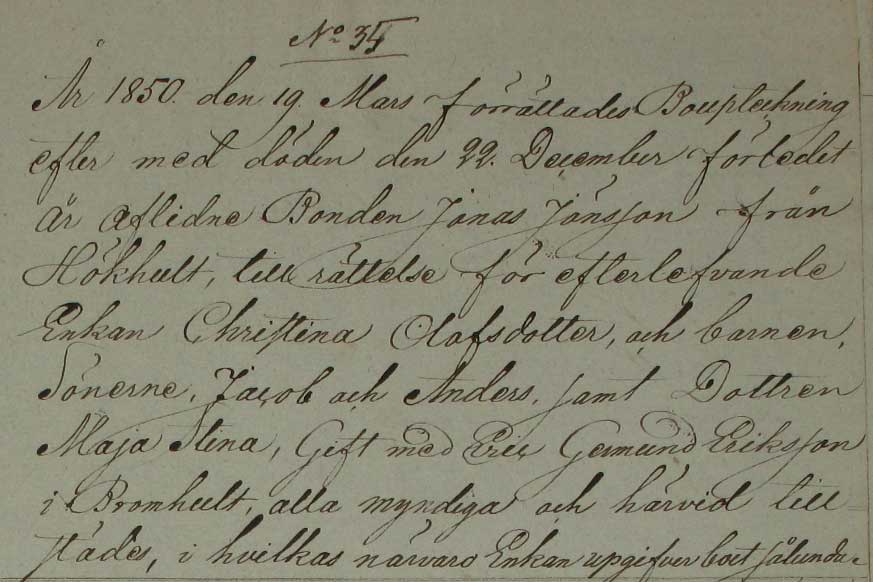 No 35
År 1850. den 19. Mars förrättades Bouptekning
efter med döden den 22. December förledet
år aflidne Bonden Jonas Jönsson från
Hökhult, till rättelse för efterlefvande
Enkan Christina Olofsdotter, och barnen,
Sönerne, Jacob och Anders, samt Dottren
Maja Stina, Gift med Eric Germund Eriksson
i Bromhult, alla myndiga och härvid till
städes, i hvilkas närvaro Enkan upgifver boet sålunda.